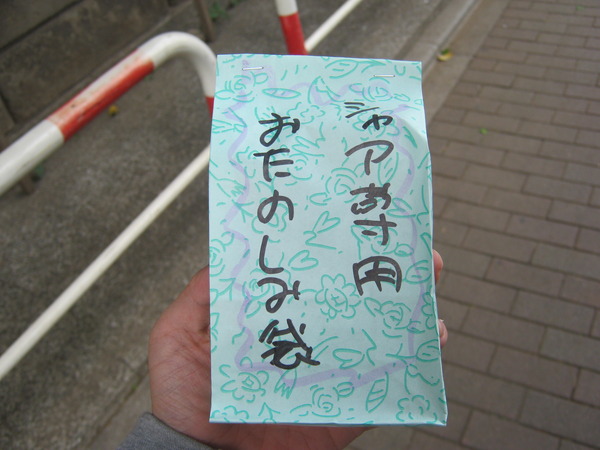 シャア専用
おたのしみ袋